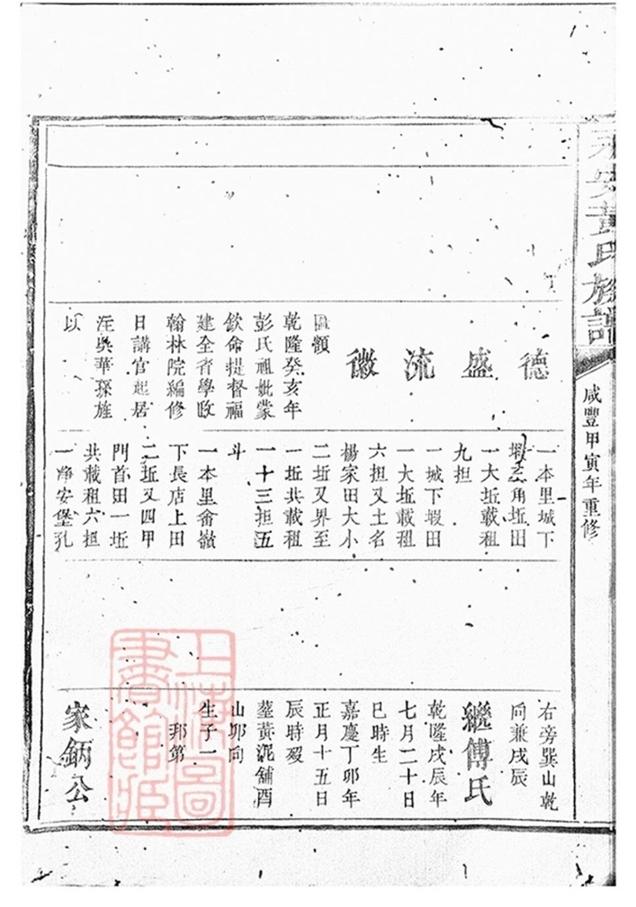 永安黃氏族譜
咸豐甲寅年重修
德盛流徽
匾額
乾隆癸亥年
彭氏祖妣蒙
欽命提督福
建全省學政
翰林院編修
日講官起居
注吳華孫旌
以
一本里城下
塅三角坵田
一大坵載租
九担
一城下塅田
一大坵載租
六担又土名
楊家田大小
二坵又界至
一坵共載租
一十三担五
斗
一本里畬嶺
下長店上田
二坵又四甲
門首田一坵
共載租六担
一淨安堡孔
右旁巽山乾
向兼戌辰
繼傅氏
乾隆戌辰年
七月二十日
巳時生
嘉慶丁卯年
正月十五日
辰時歿
葬黃泥舖酉
山卯向
生子一
邦第
家鈵公
上海圖書館藏